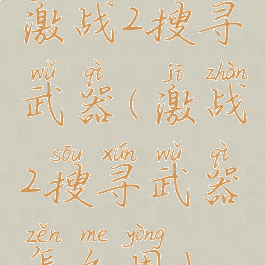 激战2搜寻
wǔ qì jī zhàn
武器(激战
sōu xún wǔ qì
2搜寻武器
zěn me yòng
怎么用)